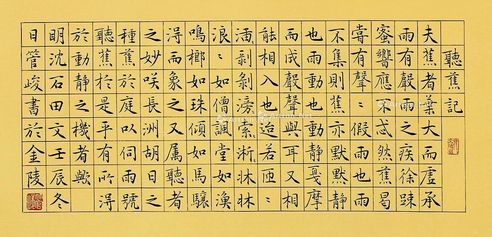 聽蕉記
夫蕉者葉大而虛承
雨有聲雨之疾徐踈
蜜響應不忒然蕉曷
嘗有聲ゝ假雨也雨
不集則蕉亦默默靜
也雨動也動靜戛摩
而成聲聲與耳又相
能相入也迨若匝ゝ
剝剝滂索淅牀牀
浪ゝ如僧諷堂如漁
鳴榔如珠傾如馬驤
得而象之又属聽者
之妙咲長洲胡日之
種蕉於庭以伺雨號
聽蕉於是乎有所得
於動靜之機者歟
明沈石田文壬辰冬
日管峻書於金陵